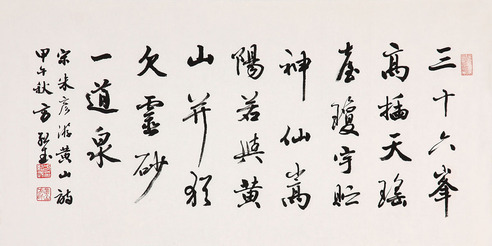 三十六峯
高插天瑶
臺瓊宇貯
神仙嵩
陽若與黄
山并猶
欠靈砂
一道泉
宋朱彦游黄山詩
甲午秋方